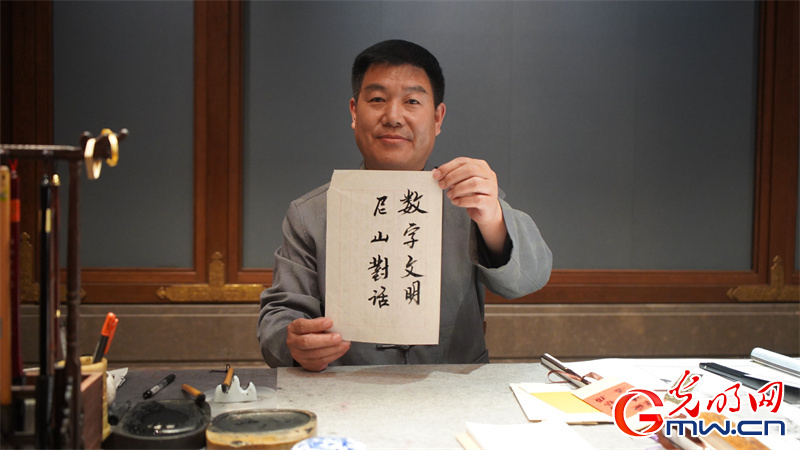 数字文明
尼山對话
光明网
GMW.CN